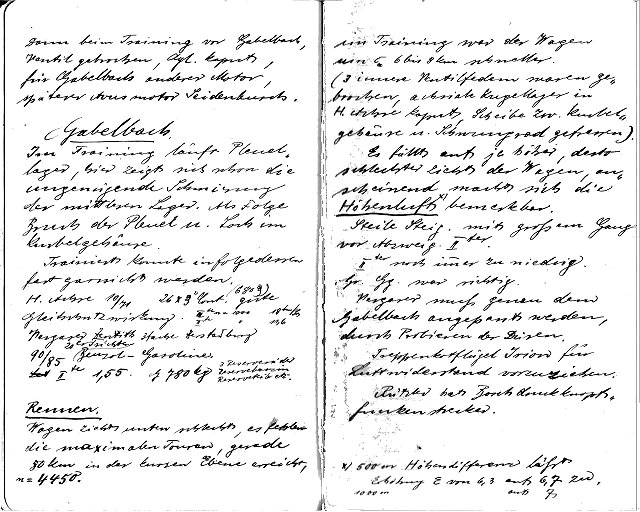 dann beim Training vor Gabelbach,
Ventil gebrochen, Cyl. kaputt,
für Gabelbach anderer Motor,
später Ausmotor
Gabelbach.
Im Training läuft Pleuel-
lager, hier zeigt sich schon die
ungenügende Schmierung
der mittleren Lager. Als Folge
Bruch der Pleuel u. Loch im
Kurbelgehäuse.
Trainiert konnte infolgedessen
fast garnicht werden.
H. Achse 26 x 9 Cont. gute
Gleitschutzwirkung.
Vergaser Zenith starke Zerstäubung
90/85 Benzol-Gasoline
I ter 1,55. 780 kg
Rennen.
Wagen zieht unten schlecht, es fehlen
die maximalen Touren, gerade
80 km in der kurzen Ebene erreicht,
n = 4450.
im Training war der Wagen
um ca 6 bis 8 km schneller.
(3 innere Ventilfedern waren ge-
brochen, achsiale Kugellager in
H. Achse kaputt, Scheibe zw. Kurbel-
gehäuse u. Schwungrad gefressen).
Es fällt auf, je höher, desto
schlechter zieht der Wagen, an-
scheinend macht sich die
Höhenluft x) bemerkbar.
Steile Steig. mit großem Gang
vor Abzweig II ter.
I ter noch immer zu niedrig.
Gr. Gg. war richtig.
Vergaser muß genau dem
Gabelbach angepaßt werden,
durch Probieren der Düsen.
Tropfenkotflügel Torion für
Luftwiderstand vorzuziehen.
hat Bosch druckknopf-
funken stecker.
x) 500 m Höhendifferenz läßt
Erhöhung E von 6,3 auf 6,7 zu.
1000 m auf 7,